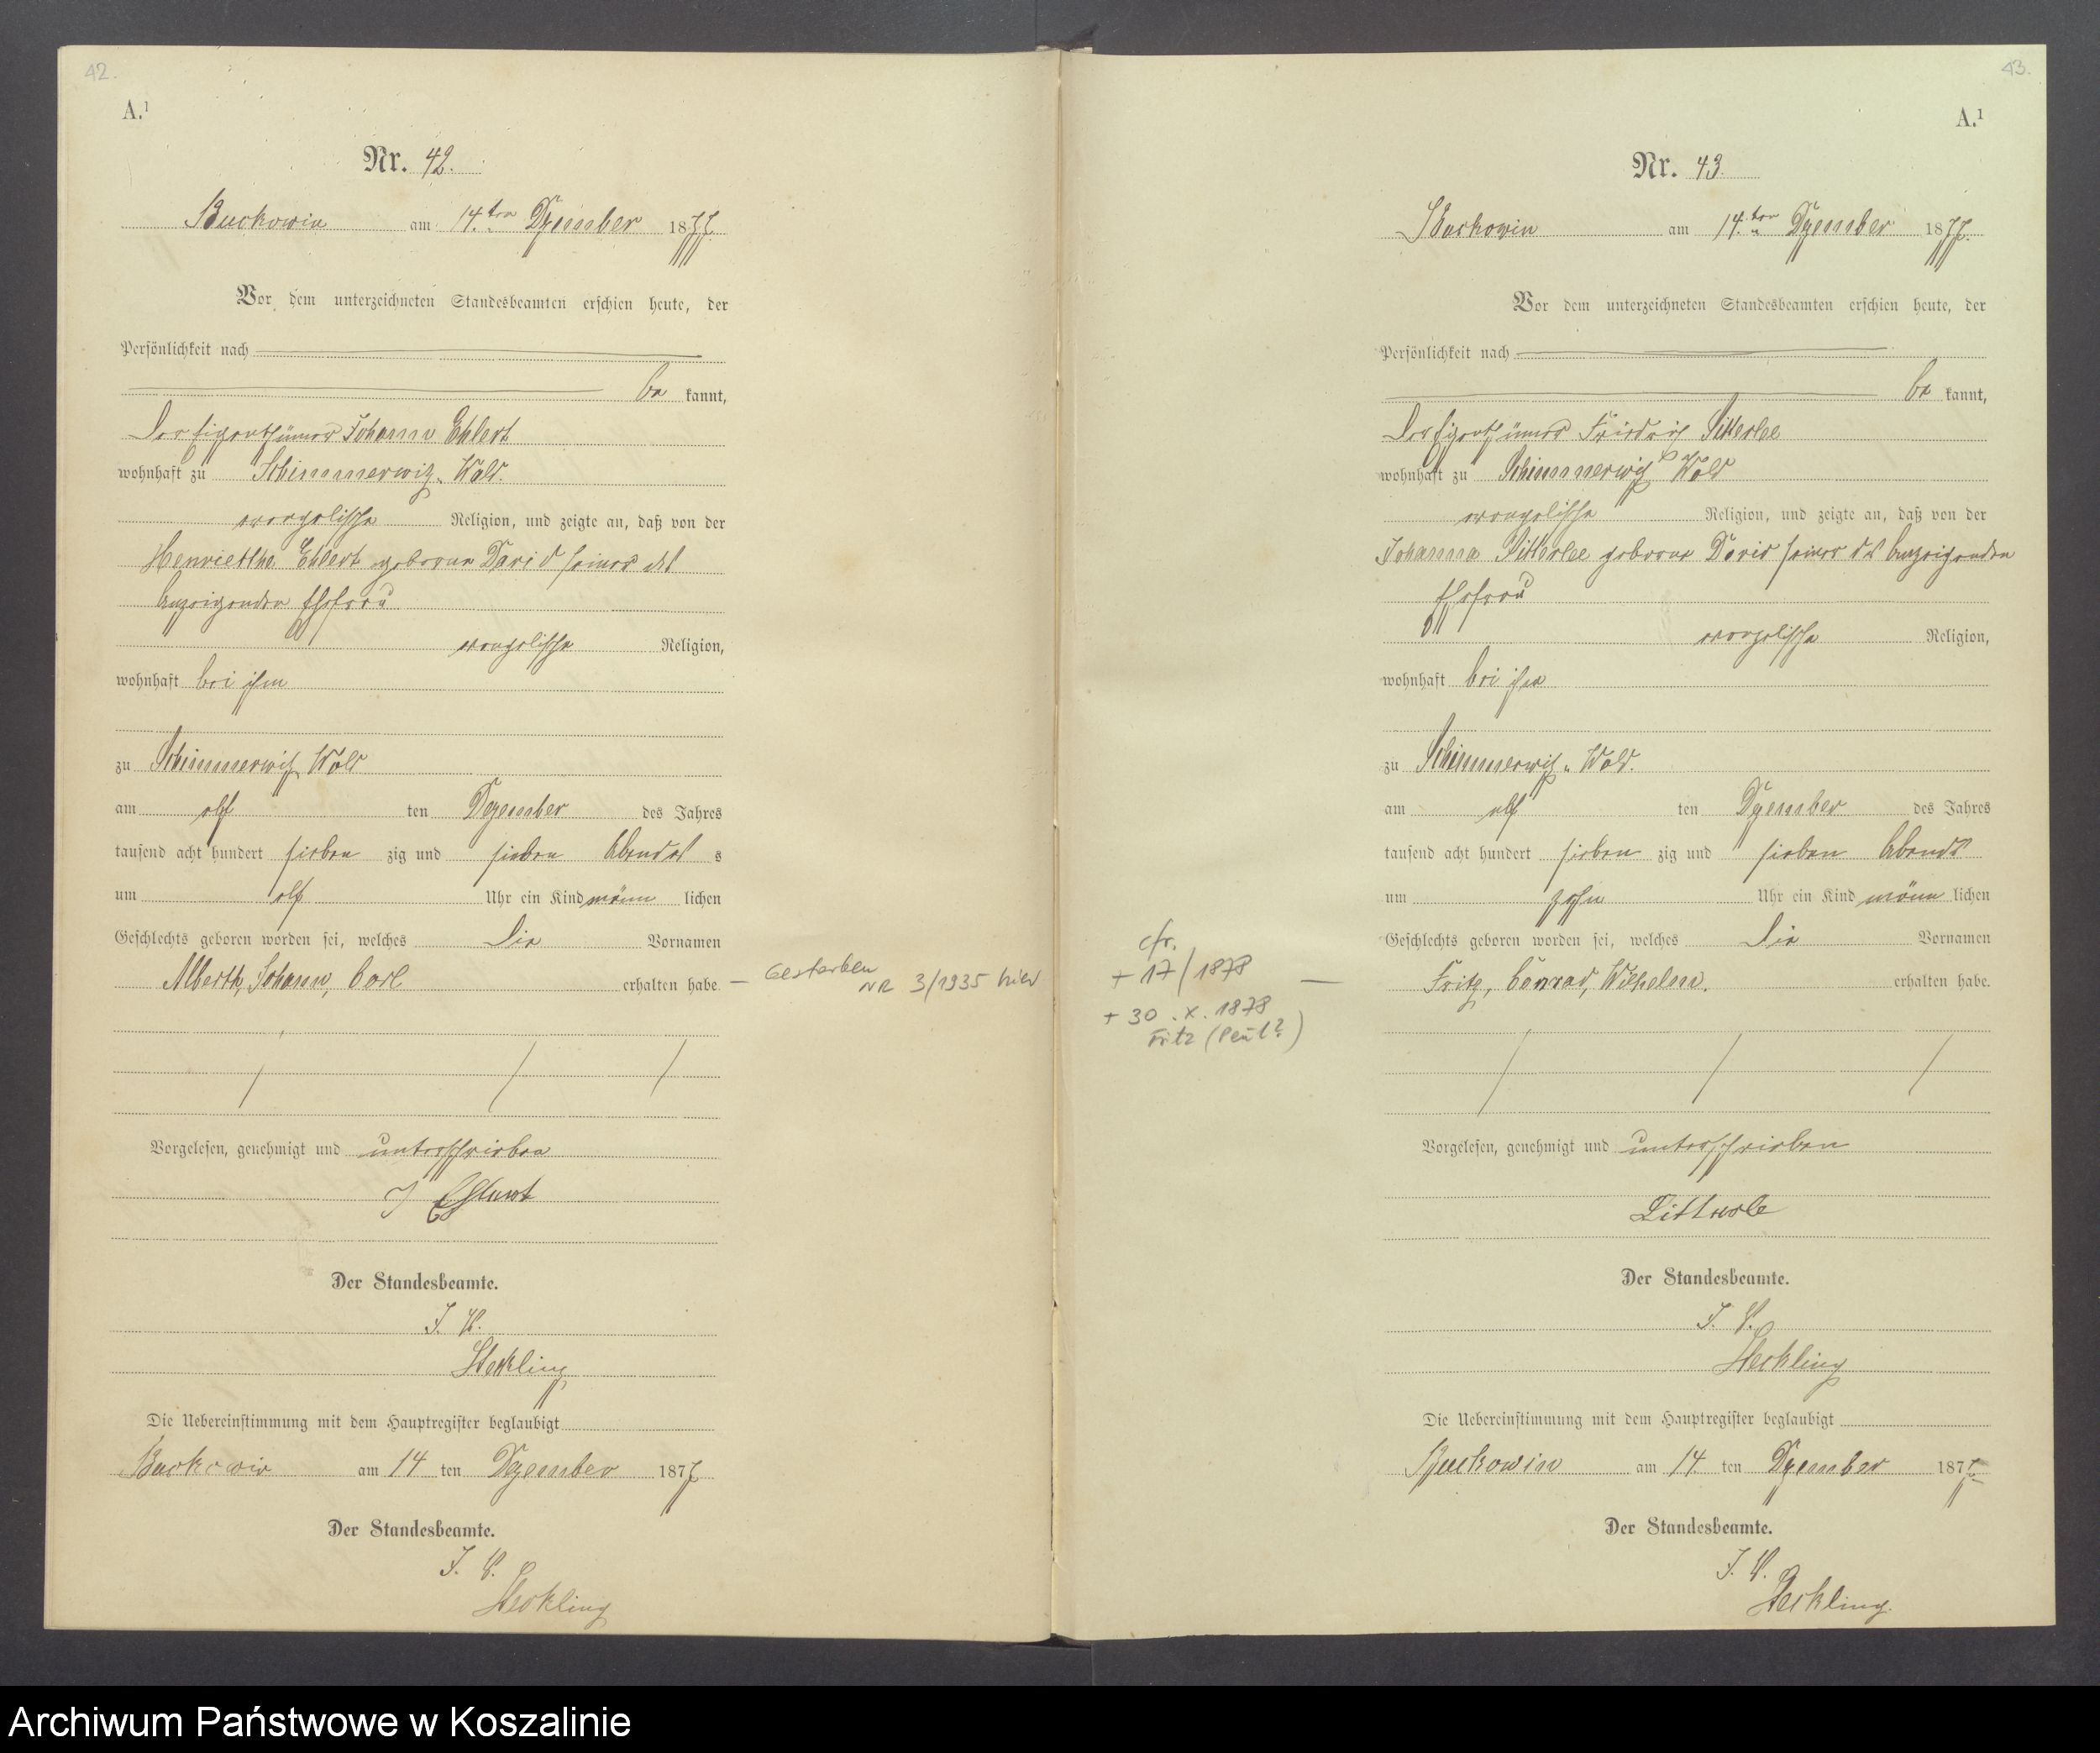 42.
A.¹
Nr. 42.
Buckowin am 14. ten Dezember 1877.
Vor dem unterzeichneten Standesbeamten erschien heute, der
Persönlichkeit nach
be kannt,
der Eigenthümer Johann Ehlert
wohnhaft zu Schimmerwitz Wald.
evangelischer Religion, und zeigte an, daß von der
Henriette Ehlert geborne David seiner des
Anzeigenden Ehefrau
evangelischer Religion,
wohnhaft bei ihm
zu Schimmerwitz Wald
am elf ten Dezember des Jahres
tausend acht hundert sieben zig und sieben Abends s
um elf Uhr ein Kind männ lichen
Geschlechts geboren worden sei, welches die Vornamen
Alberth, Johann, Carl erhalten habe.
— Gestorben
NR 3/1935 hier
Vorgelesen, genehmigt und unterschrieben
J Ehlert
Der Standesbeamte.
J. V.
Steckling
Die Uebereinstimmung mit dem Hauptregister beglaubigt
Buckowin am 14 ten Dezember 1877
Der Standesbeamte.
J. V.
Steckling
43.
A.¹
Nr. 43.
Buckowin am 14. ten Dezember 1877.
Vor dem unterzeichneten Standesbeamten erschien heute, der
Persönlichkeit nach
be kannt,
der Eigenthümer Friedrich
wohnhaft zu Schimmerwitz Wald
evangelischer Religion, und zeigte an, daß von der
Johanna geborne David seiner des Anzeigenden
Ehefrau
evangelischer Religion,
wohnhaft bei ihm
zu Schimmerwitz Wald.
am elf ten Dezember des Jahres
tausend acht hundert sieben zig und sieben Abends
um zehn Uhr ein Kind männ lichen
Geschlechts geboren worden sei, welches die Vornamen
Fritz, Conrad, Wilhelm. erhalten habe.
cfr.
+ 17/1878 —
+ 30. X. 1878
Fritz
Vorgelesen, genehmigt und unterschrieben
Der Standesbeamte.
J. V.
Steckling
Die Uebereinstimmung mit dem Hauptregister beglaubigt
Buckowin am 14 ten Dezember 1877
Der Standesbeamte.
J. V.
Steckling.
Archiwum Państwowe w Koszalinie